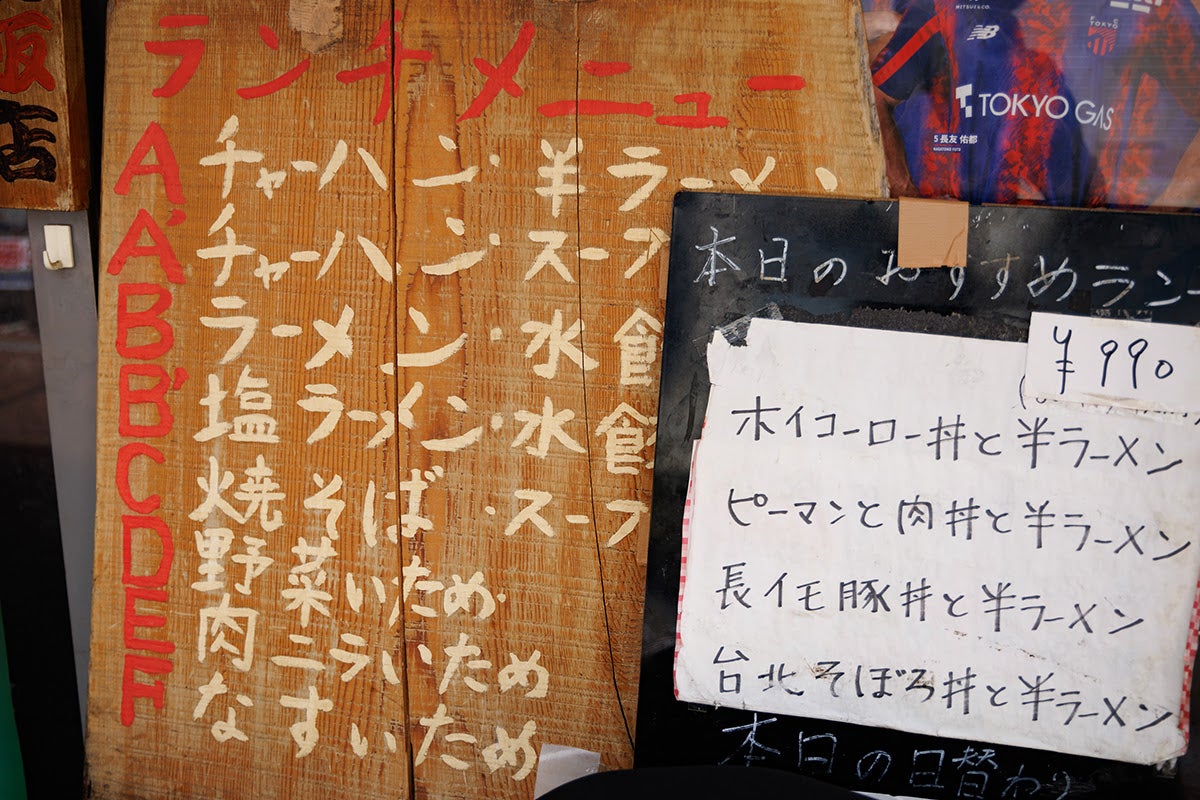 飯
店
ランチメニュー
A チャーハン・半ラーメン
A' チャーハン・スープ
B ラーメン・水餃
B' 塩ラーメン・水餃
C 焼そば・スープ
D 野菜いため
E 肉ニラいため
F なすいため
MITSUI&CO.
FC TOKYO
TOKYO GAS
5 長友 佑都
NAGATOMO YUTO
本日のおすすめラン
¥990
ホイコーロー丼と半ラーメン
ピーマンと肉丼と半ラーメン
長イモ豚丼と半ラーメン
台北そぼろ丼と半ラーメン
本日の日替わり